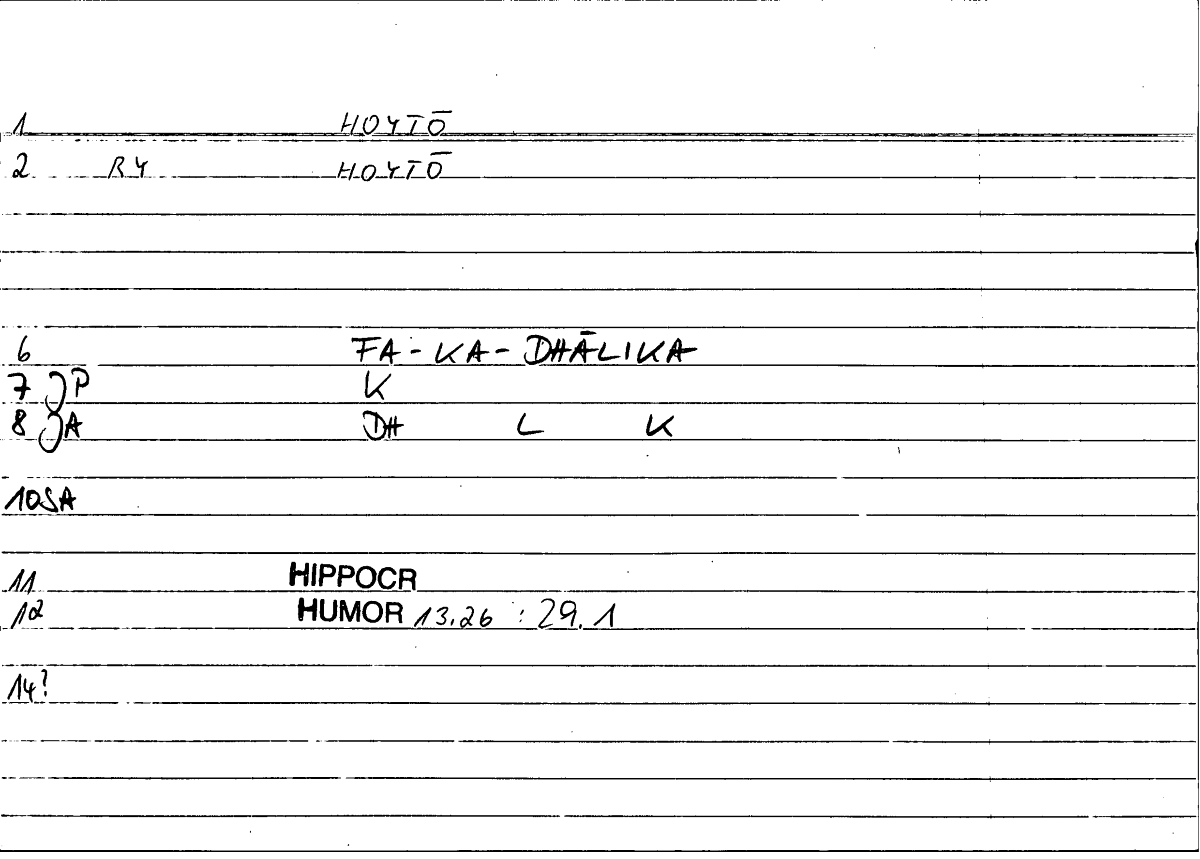 1 HOYTŌ
2 RY HOYTŌ
6 FA-KA-DHĀLIKA
7 JP K
8 JA DH L K
10SA
11 HIPPOCR
12 HUMOR 13.26 : 29.1
14?